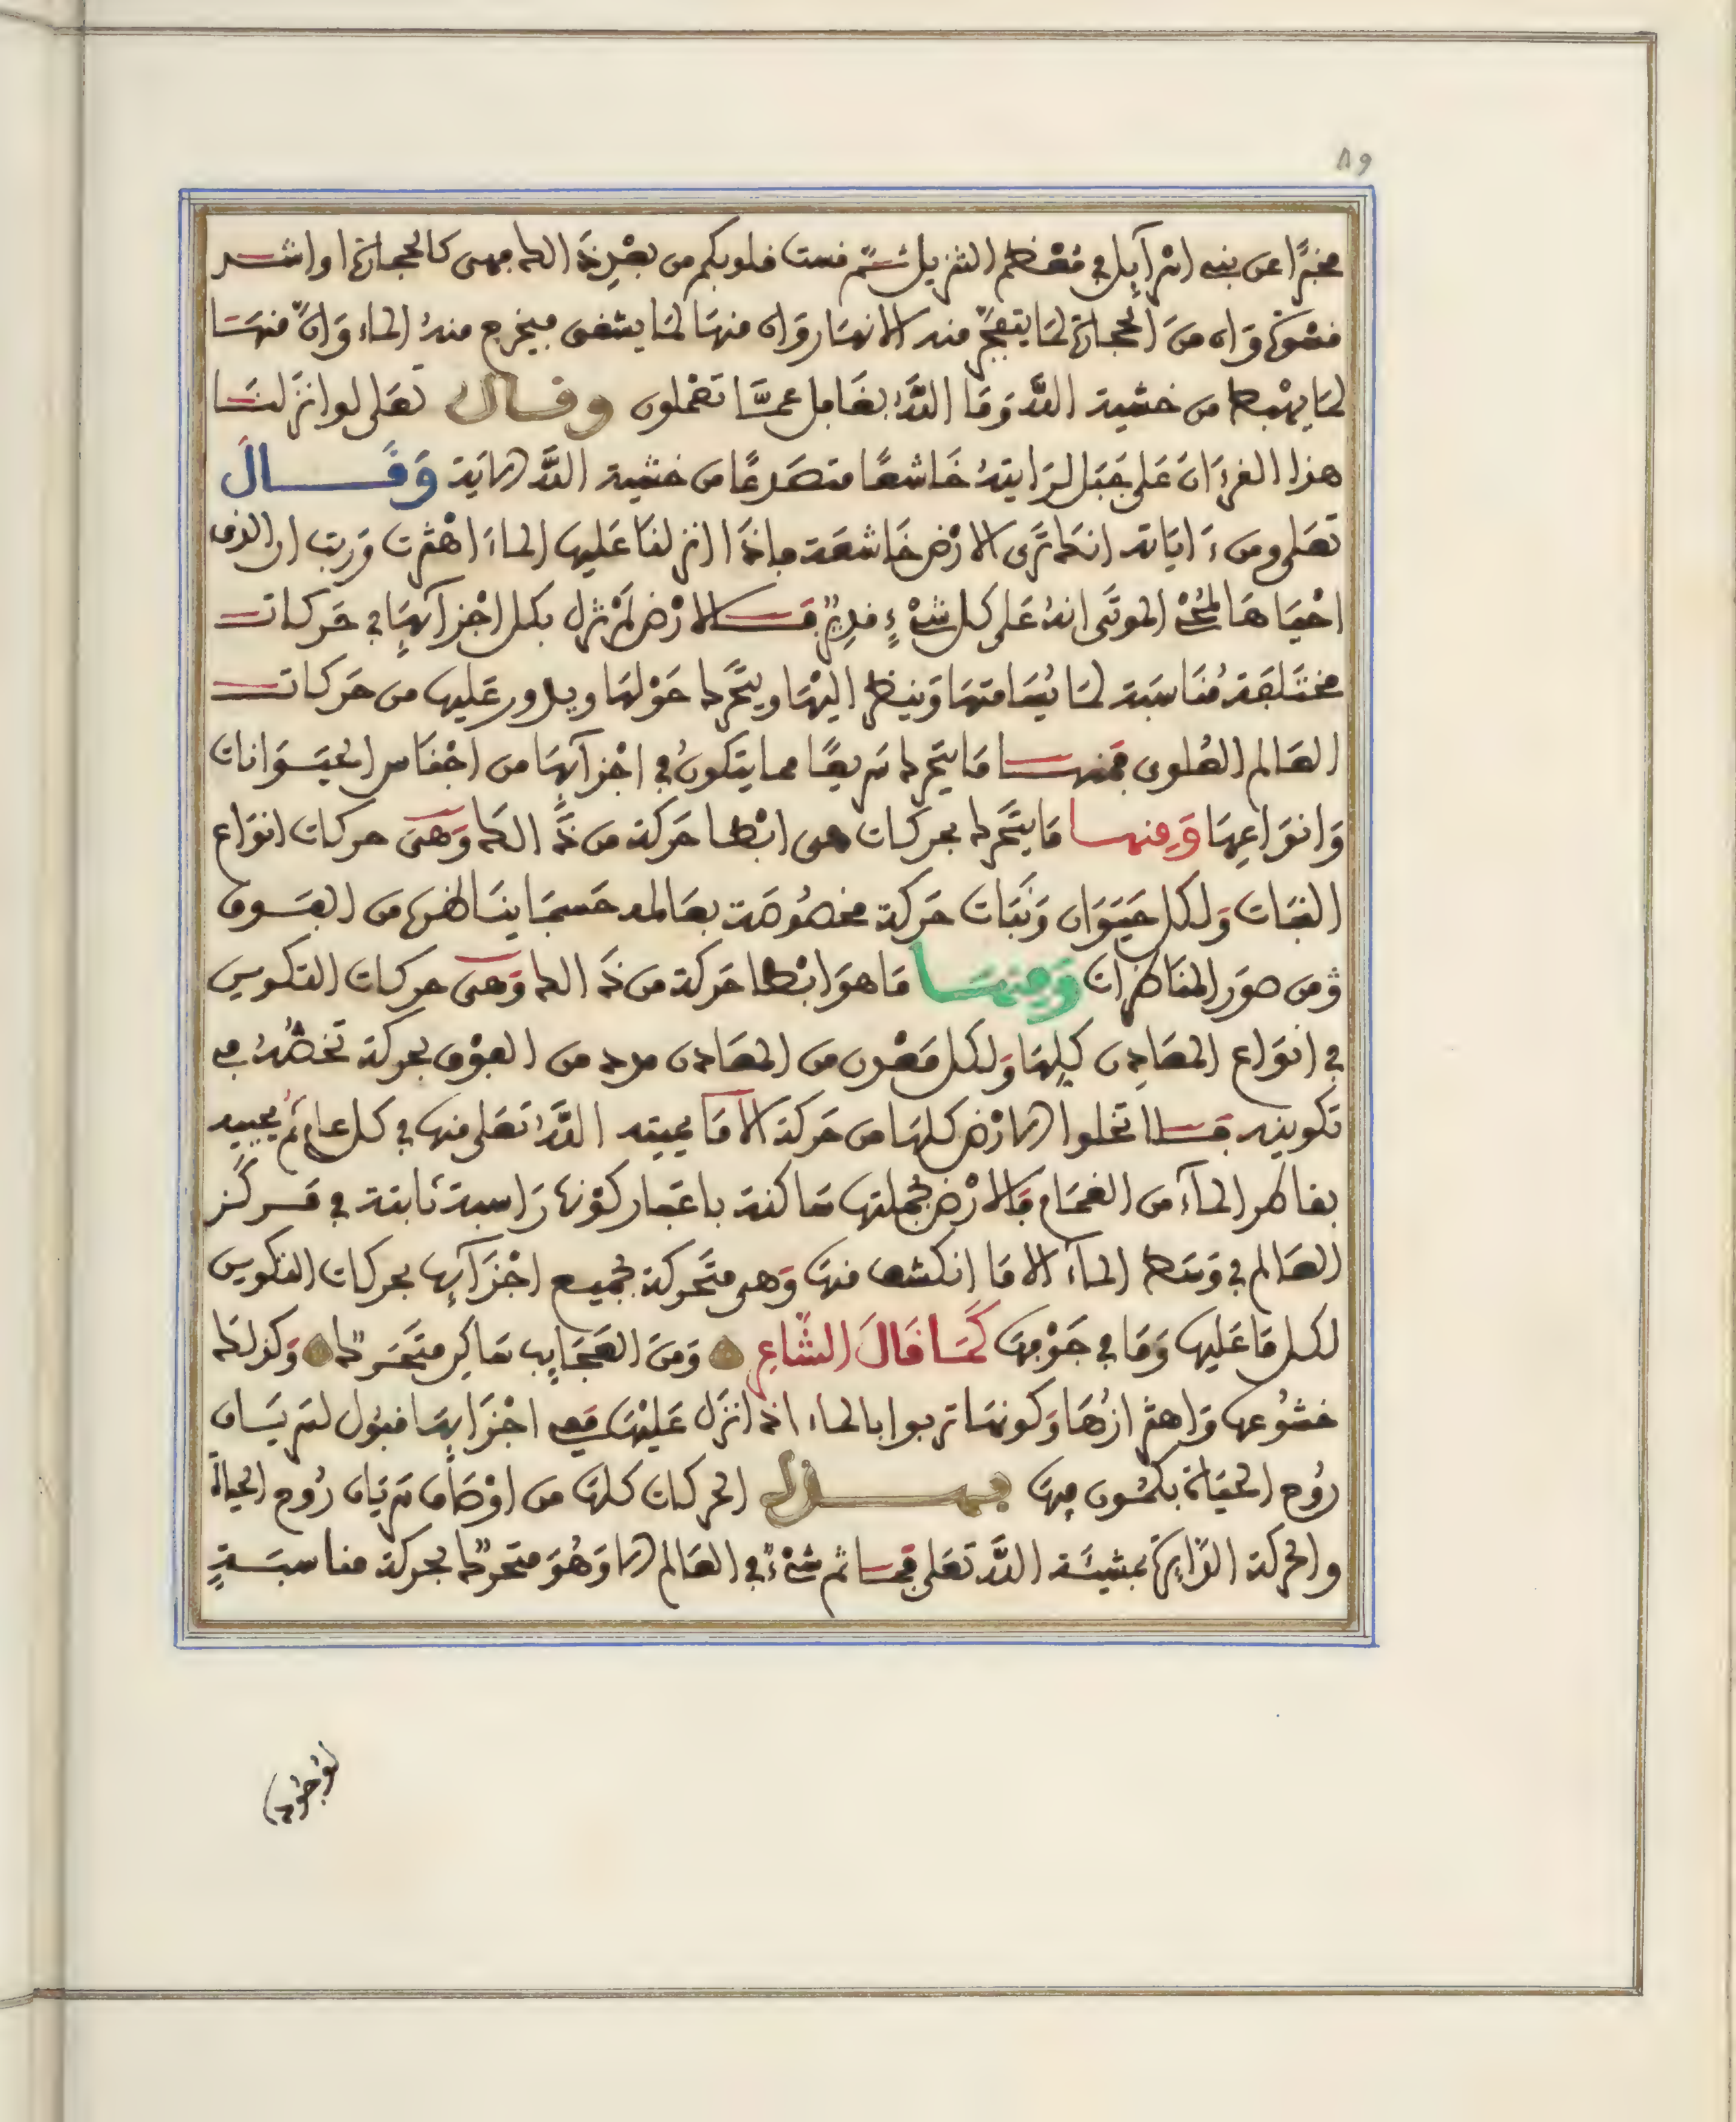 ٨٩
مخبرًا عن بني اسرآئيل في مُعْظم التنزيل ثم قست قلوبكم من بعْدِ ذَالك فهي كالحجارة او اشد
قسْوَة وَان منَ الحجارة لمَا يتفجّر منه الانهَار وَان منهَا لمَا يشقق فيخرج منهُ الماء وَانّ منهَا
لمَا يهْبط من خشية اللَّه وَمَا اللَّهُ بغَافل عمَّا تعْملون وقال تعَلى لو انزَلنَا
هذا القرءَانَ عَلى جَبَل لرَايتهُ خَاشعًا متصَدعًا من خشية اللَّه الايَة وَقَال
تعَلى ومن ءَايَاته انك تَرَى الارْض خَاشعَة فاذَا انزلنَا عَليها الماءَ اهْتزت وَربت ان الذى
احْيَاهَا لمُحْىِ الموتَى انهُ عَلى كل شىْءٍ قدِيرٌ فَالارْض لمْ تزل بكل اجْزآئهَا في حَركات
مختَلفة مُنَاسَبَة لمَا يُسَامتهَا وَينظر اليْهَا ويتحَّرك حَوْلهَا ويدور عَليها من حَركات
العَالم العُلوى فمنهَا مَا يتحَرك سَريعًا مما يتكونُ في اجْزآئهَا من اجْنَاس الحيَوَانات
وَانوَاعِهَا وَمِنها مَا يتَحَّرك بحركات هى ابْطا حَركة من ذَالك وَهىَ حركات انوَاع
النبَات وَلكل حيَوَان وَنَبَات حَركة مخصُوصَة بعَالمه حَسبمَا ينَاظره من الفَوق
وَمن صوَر المنَاظرات وَمِنهَا مَا هوَ ابْطا حَركة من ذَالك وَهىَ حركات التكوين
في انوَاع المعَادِن كلِهَا وَلكل مَعْدن من المعَادن مدد من الفوْق بحركة تخصُّهُ في
تكوينه فلا تخلوا الارْض كلهَا من حَركة الا مَا يميته اللَّه تعَلى منها في كل عام ثمُ يحييه
بقاطر المآء من الغمَام فالارْض بجملتها سَاكنة باعتبار كوْنها رَاسية ثابتة في مَركز
العَالم في وَسَط المآء الا مَا انكشف منهَا وَهى متَحركة بجميع اجْزَآئها بحركات التكوين
لكل مَا عَليها وَمَا في جَوْفهَا كَمَا قَالَ الشَّاعِر وَمنَ العَجَايب سَاكن متحَركٌ وَكذلك
خشوُعها وَاهتزازُهَا وَكونهَا تربوا بالماء اذ انزَل عَليْهَا فهى اجْزَايهَا قبوُل لسَريَان
رُوح الحيَاة بكمُون فيهَا فهذه الحركات كلهَا من اوْصَاف سَريَان رُوح الحياة
والحركة الدَّايرة بمشيئَة اللَّه تعَلى فمَا ثم شىْءٌ في العَالم الا وَهُوَ متحرّك بحركة مناسبَةٍ